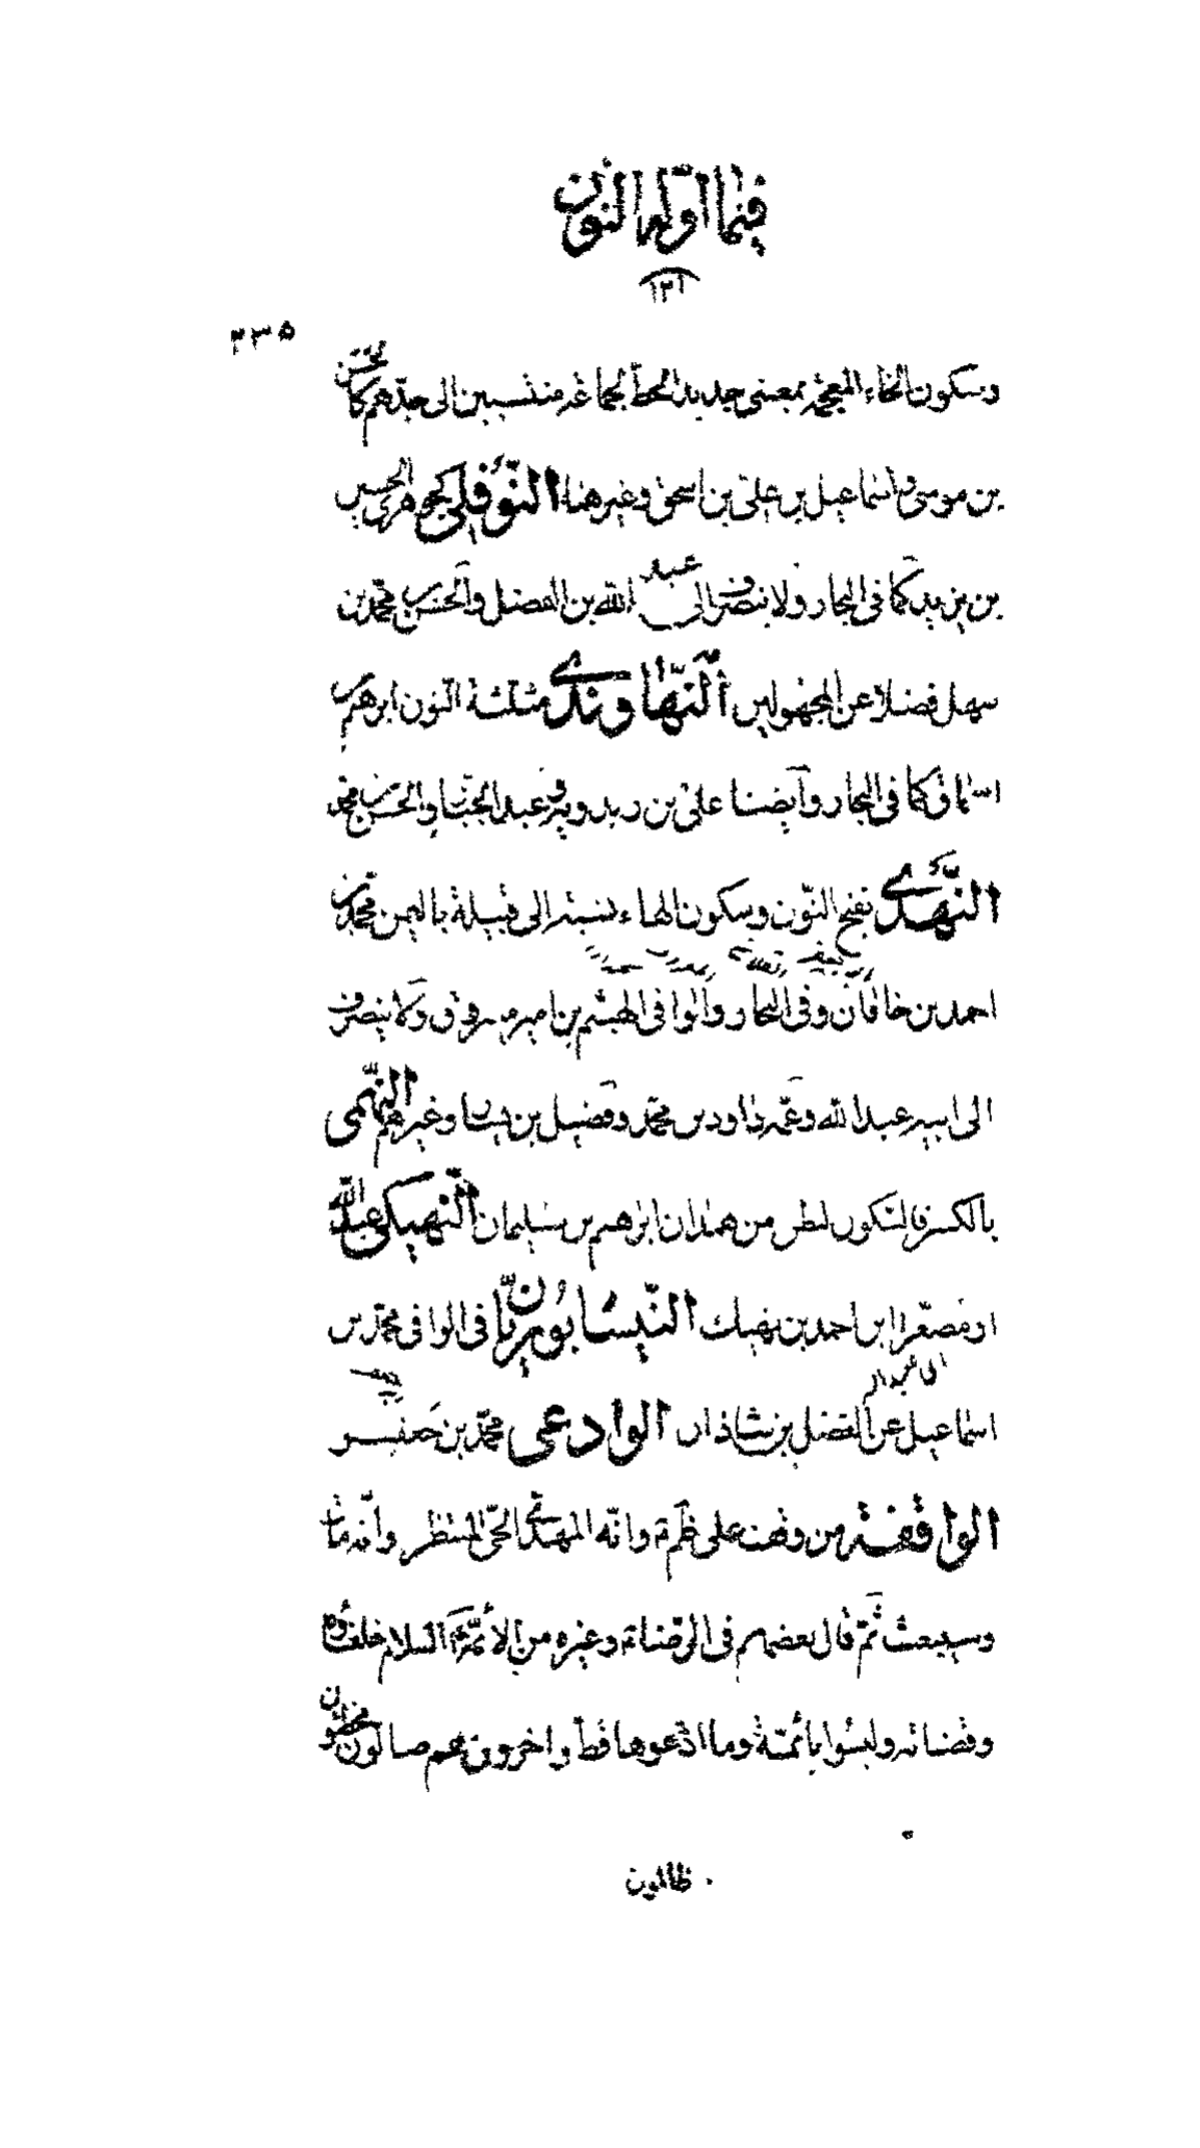 فيما اوّله النون
١٣١
٢٣٥
وسكون الخاء المعجمة بمعنى جديد الحظ لجماعة منتسبين الى جدّهم كالحسن
بن موسى واسماعيل بن على بن اسحق وغيرهما النّوفلى كجوهرى الحسين
بن يزيد كما فى البحار ولا ينصرف الى عبد الله بن الفضل والحسن بن محمد بن
سهل فضلا عن المجهولين النّهاوندى مثلثة النون ابرهيم بن
اسحاق كما فى البحار وأيضا على بن ريد ويه وعبد الجبّار والحسن بن محمد
النّهدى بفتح النّون وسكون الهاء نسبة الى قبيلة باليمن محمد بن
احمد بن خاقان وفى البحار والوافى الهيثم بن ابى مسروق ولا ينصرف
الى ابيه عبد الله وعمّه داود بن محمد وفضيل بن يسار وغيرهم النّهمى
بالكسر فالسكون لبطن من همدان ابرهيم بن سليمان النّهيكى عبد الله
او مصغّرا ابن احمد بن نهيك النّيسابوريّان فى الوافى محمّد بن
اسماعيل عن الفضل بن شاذان الوادعى محمّد بن جعفر
الواقفة من وقف على ظم ع وانّه المهدى الحىّ المنتظر وأنّه مات
وسيبعث ثمّ قال بعضهم فى الرّضا ع وغيره من الأئمّة ع السلام خلفاؤه
وقضاته وليسوا بائمّة وما ادّعوها قطّ واخرون انهم ضالون مخطئون
ظالمون